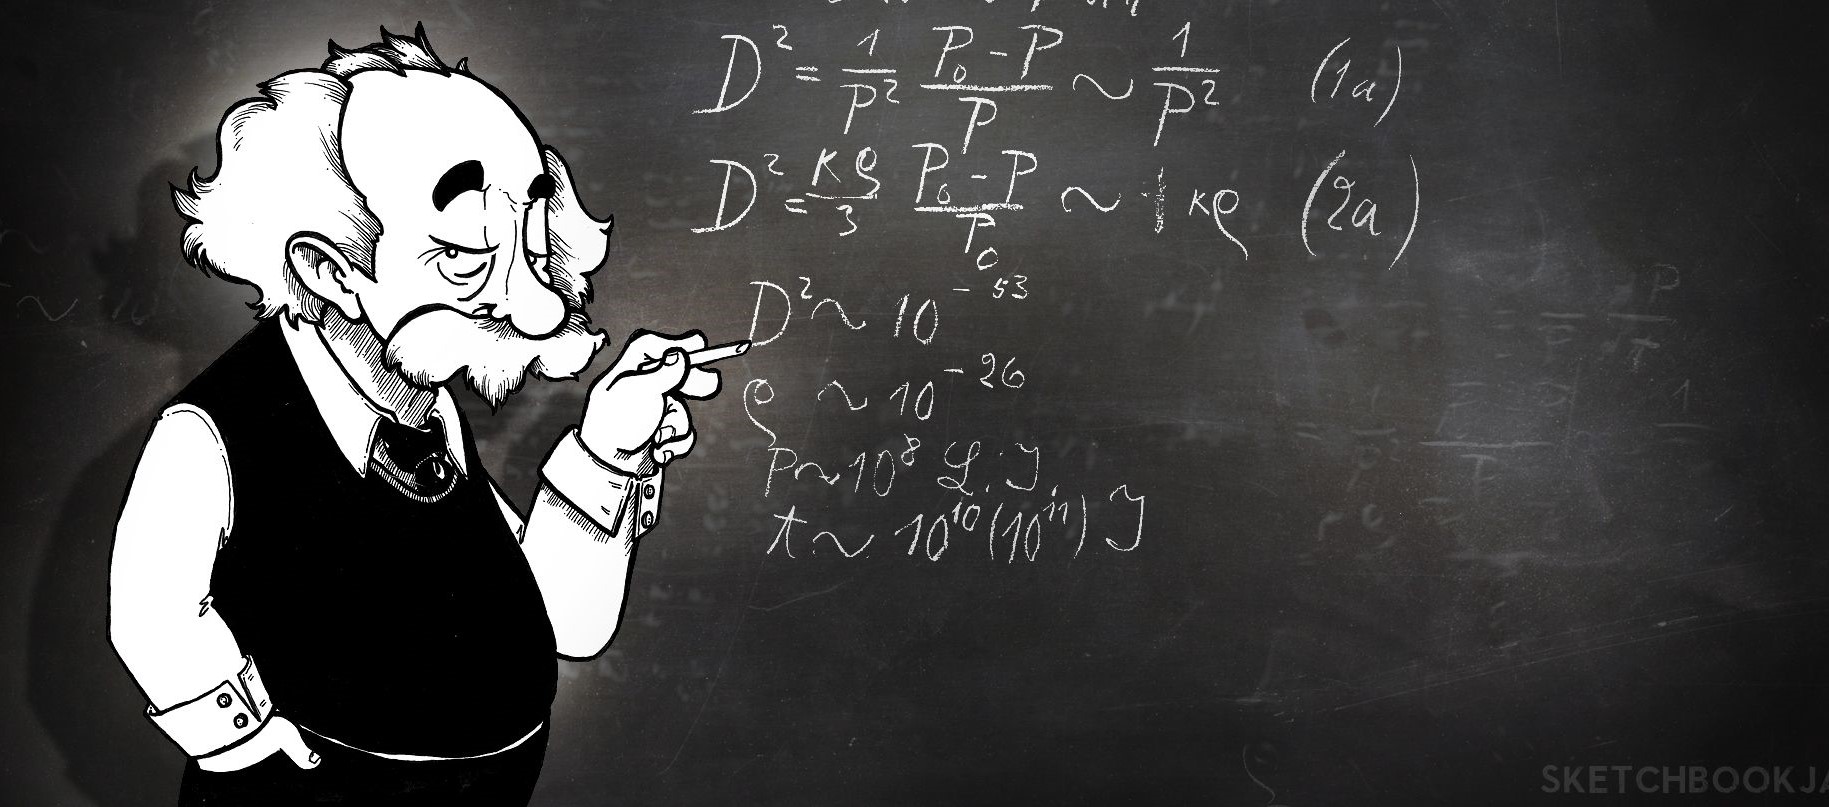 D² = 1/P² P₀-P/P ~ 1/P² (1a)
D² = κρ/3 P₀-P/P₀ ~ κρ (2a)
D² ~ 10⁻⁵³
ρ ~ 10⁻²⁶
P ~ 10⁸ L.J.
t ~ 10¹⁰(10¹¹) J
SKETCHBOOKJA